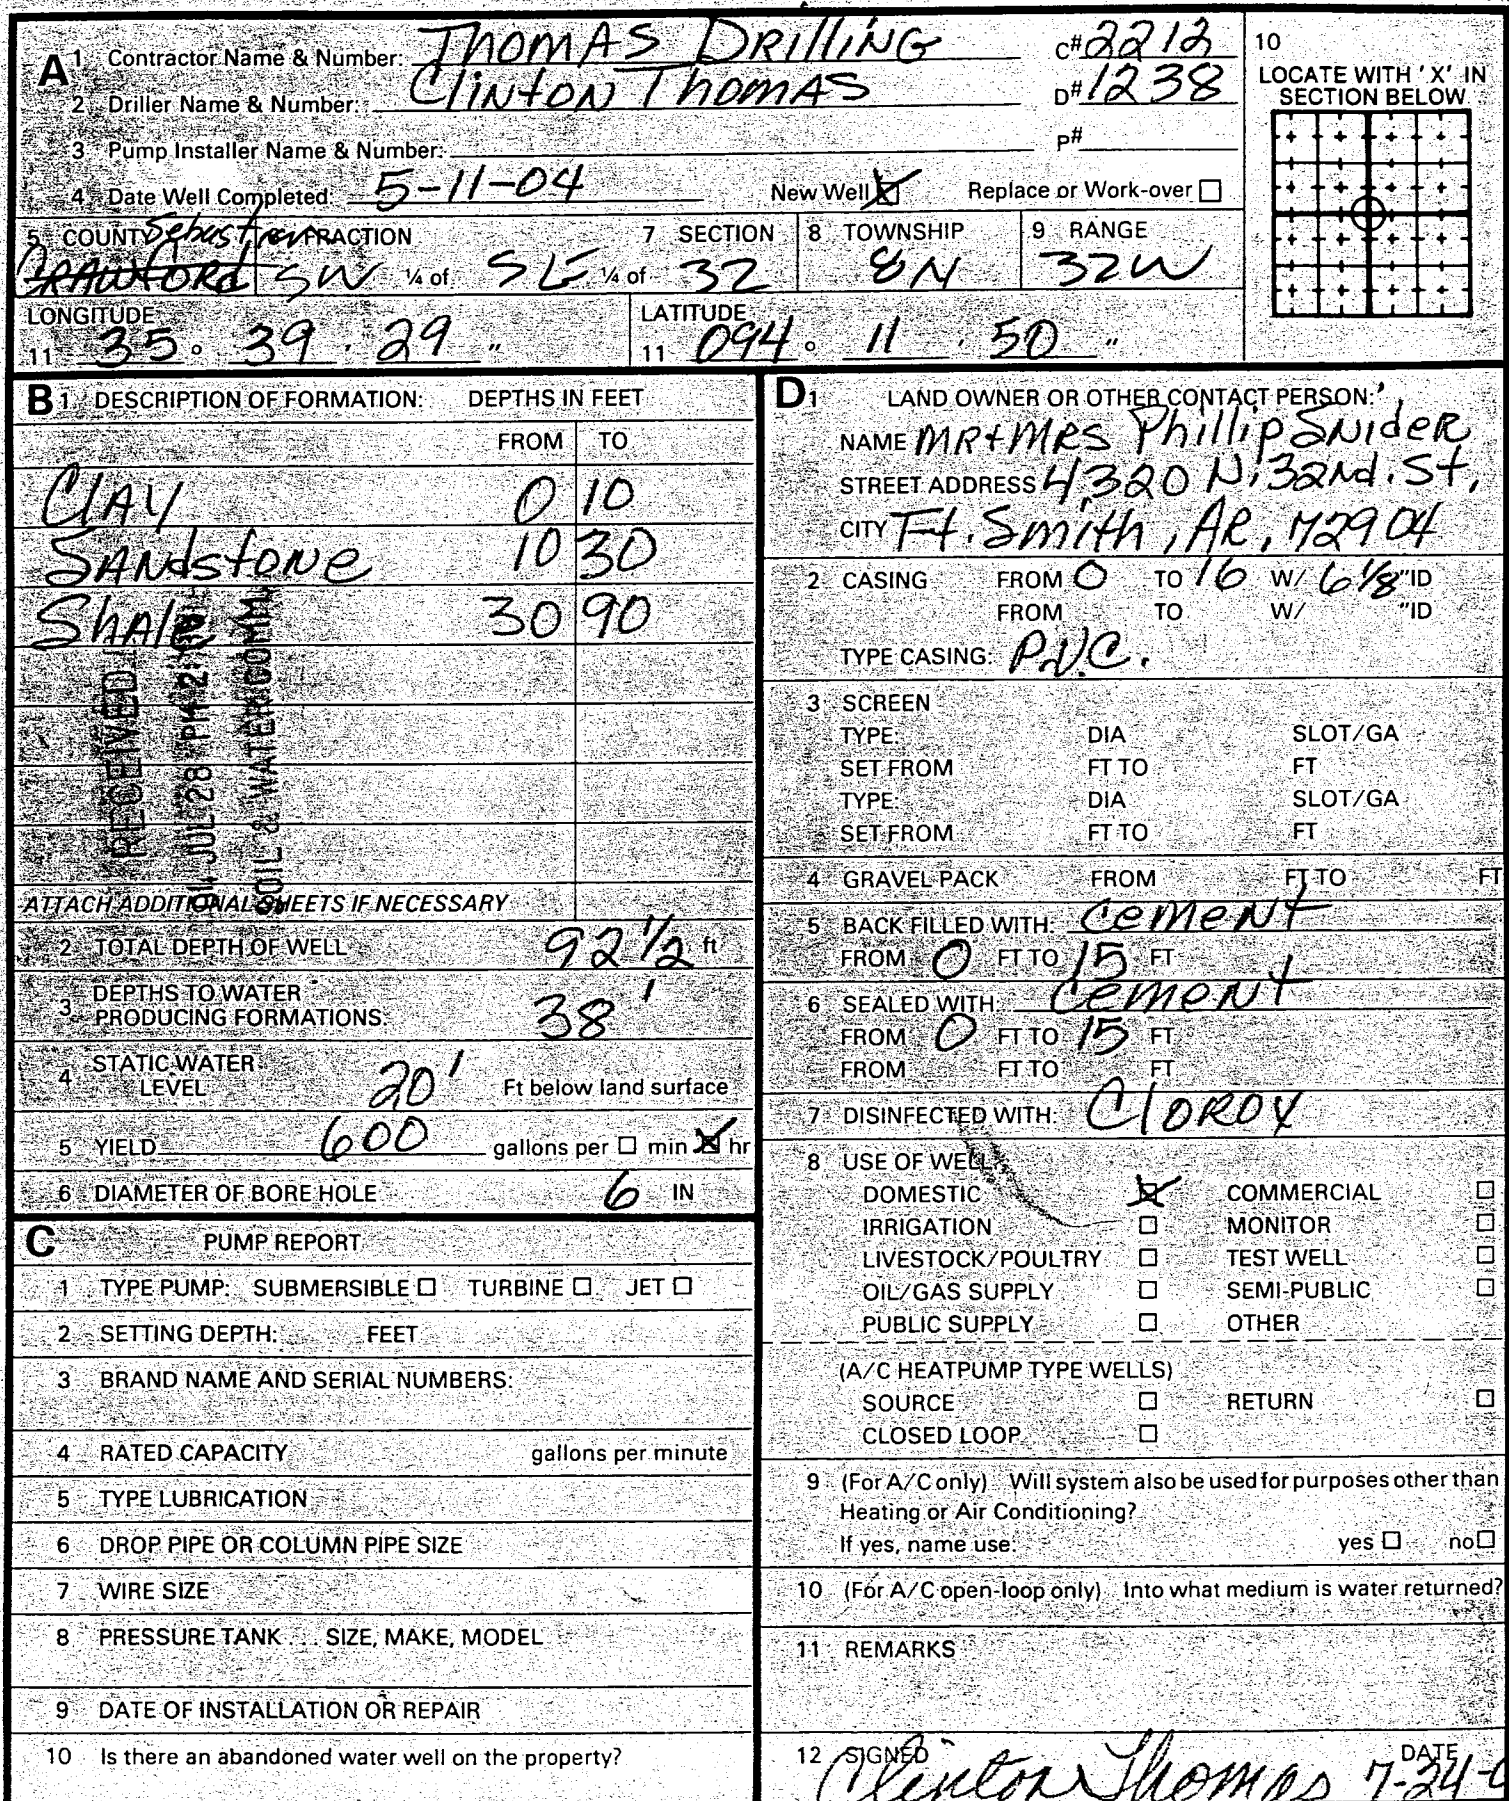 A 1 Contractor Name & Number: Thomas Drilling C# 2212
2 Driller Name & Number: Clinton Thomas D# 1238
3 Pump Installer Name & Number: P#
4 Date Well Completed: 5-11-04 New Well ☒ Replace or Work-over ☐
10
LOCATE WITH 'X' IN
SECTION BELOW
5 COUNTY Sebastian FRACTION 7 SECTION 8 TOWNSHIP 9 RANGE
CRAWFORD SW ¼ of SE ¼ of 32 8N 32W
LONGITUDE LATITUDE
11 35° 39' 29" 11 094° 11' 50"
B 1 DESCRIPTION OF FORMATION: DEPTHS IN FEET
FROM TO
CLAY 0 10
SANDSTONE 10 30
Shale 30 90
RECEIVED
JUL 28 PM
SOIL & WATER COMM
ATTACH ADDITIONAL SHEETS IF NECESSARY
2 TOTAL DEPTH OF WELL 92 1/2 ft
3 DEPTHS TO WATER
PRODUCING FORMATIONS: 38'
4 STATIC WATER
LEVEL 20' Ft below land surface
5 YIELD 600 gallons per ☐ min ☒ hr
6 DIAMETER OF BORE HOLE 6 IN
C PUMP REPORT
1 TYPE PUMP: SUBMERSIBLE ☐ TURBINE ☐ JET ☐
2 SETTING DEPTH: FEET
3 BRAND NAME AND SERIAL NUMBERS:
4 RATED CAPACITY gallons per minute
5 TYPE LUBRICATION
6 DROP PIPE OR COLUMN PIPE SIZE
7 WIRE SIZE
8 PRESSURE TANK . . . SIZE, MAKE, MODEL
9 DATE OF INSTALLATION OR REPAIR
10 Is there an abandoned water well on the property?
D 1 LAND OWNER OR OTHER CONTACT PERSON:
NAME MR+MRS Phillip Snider
STREET ADDRESS 4320 N. 32nd. St,
CITY Ft. Smith, AR, 72904
2 CASING FROM 0 TO 16 W/ 6 1/8 "ID
FROM TO W/ "ID
TYPE CASING: P.V.C.
3 SCREEN
TYPE: DIA SLOT/GA
SET FROM FT TO FT
TYPE: DIA SLOT/GA
SET FROM FT TO FT
4 GRAVEL PACK FROM FT TO FT
5 BACK FILLED WITH: cement
FROM 0 FT TO 15 FT
6 SEALED WITH: cement
FROM 0 FT TO 15 FT
FROM FT TO FT
7 DISINFECTED WITH: Clorox
8 USE OF WELL
DOMESTIC ☒ COMMERCIAL ☐
IRRIGATION ☐ MONITOR ☐
LIVESTOCK/POULTRY ☐ TEST WELL ☐
OIL/GAS SUPPLY ☐ SEMI-PUBLIC ☐
PUBLIC SUPPLY ☐ OTHER
(A/C HEATPUMP TYPE WELLS)
SOURCE ☐ RETURN ☐
CLOSED LOOP ☐
9 (For A/C only) Will system also be used for purposes other than
Heating or Air Conditioning?
If yes, name use: yes ☐ no ☐
10 (For A/C open-loop only) Into what medium is water returned?
11 REMARKS
12 SIGNED Clinton Thomas DATE 7-24-0